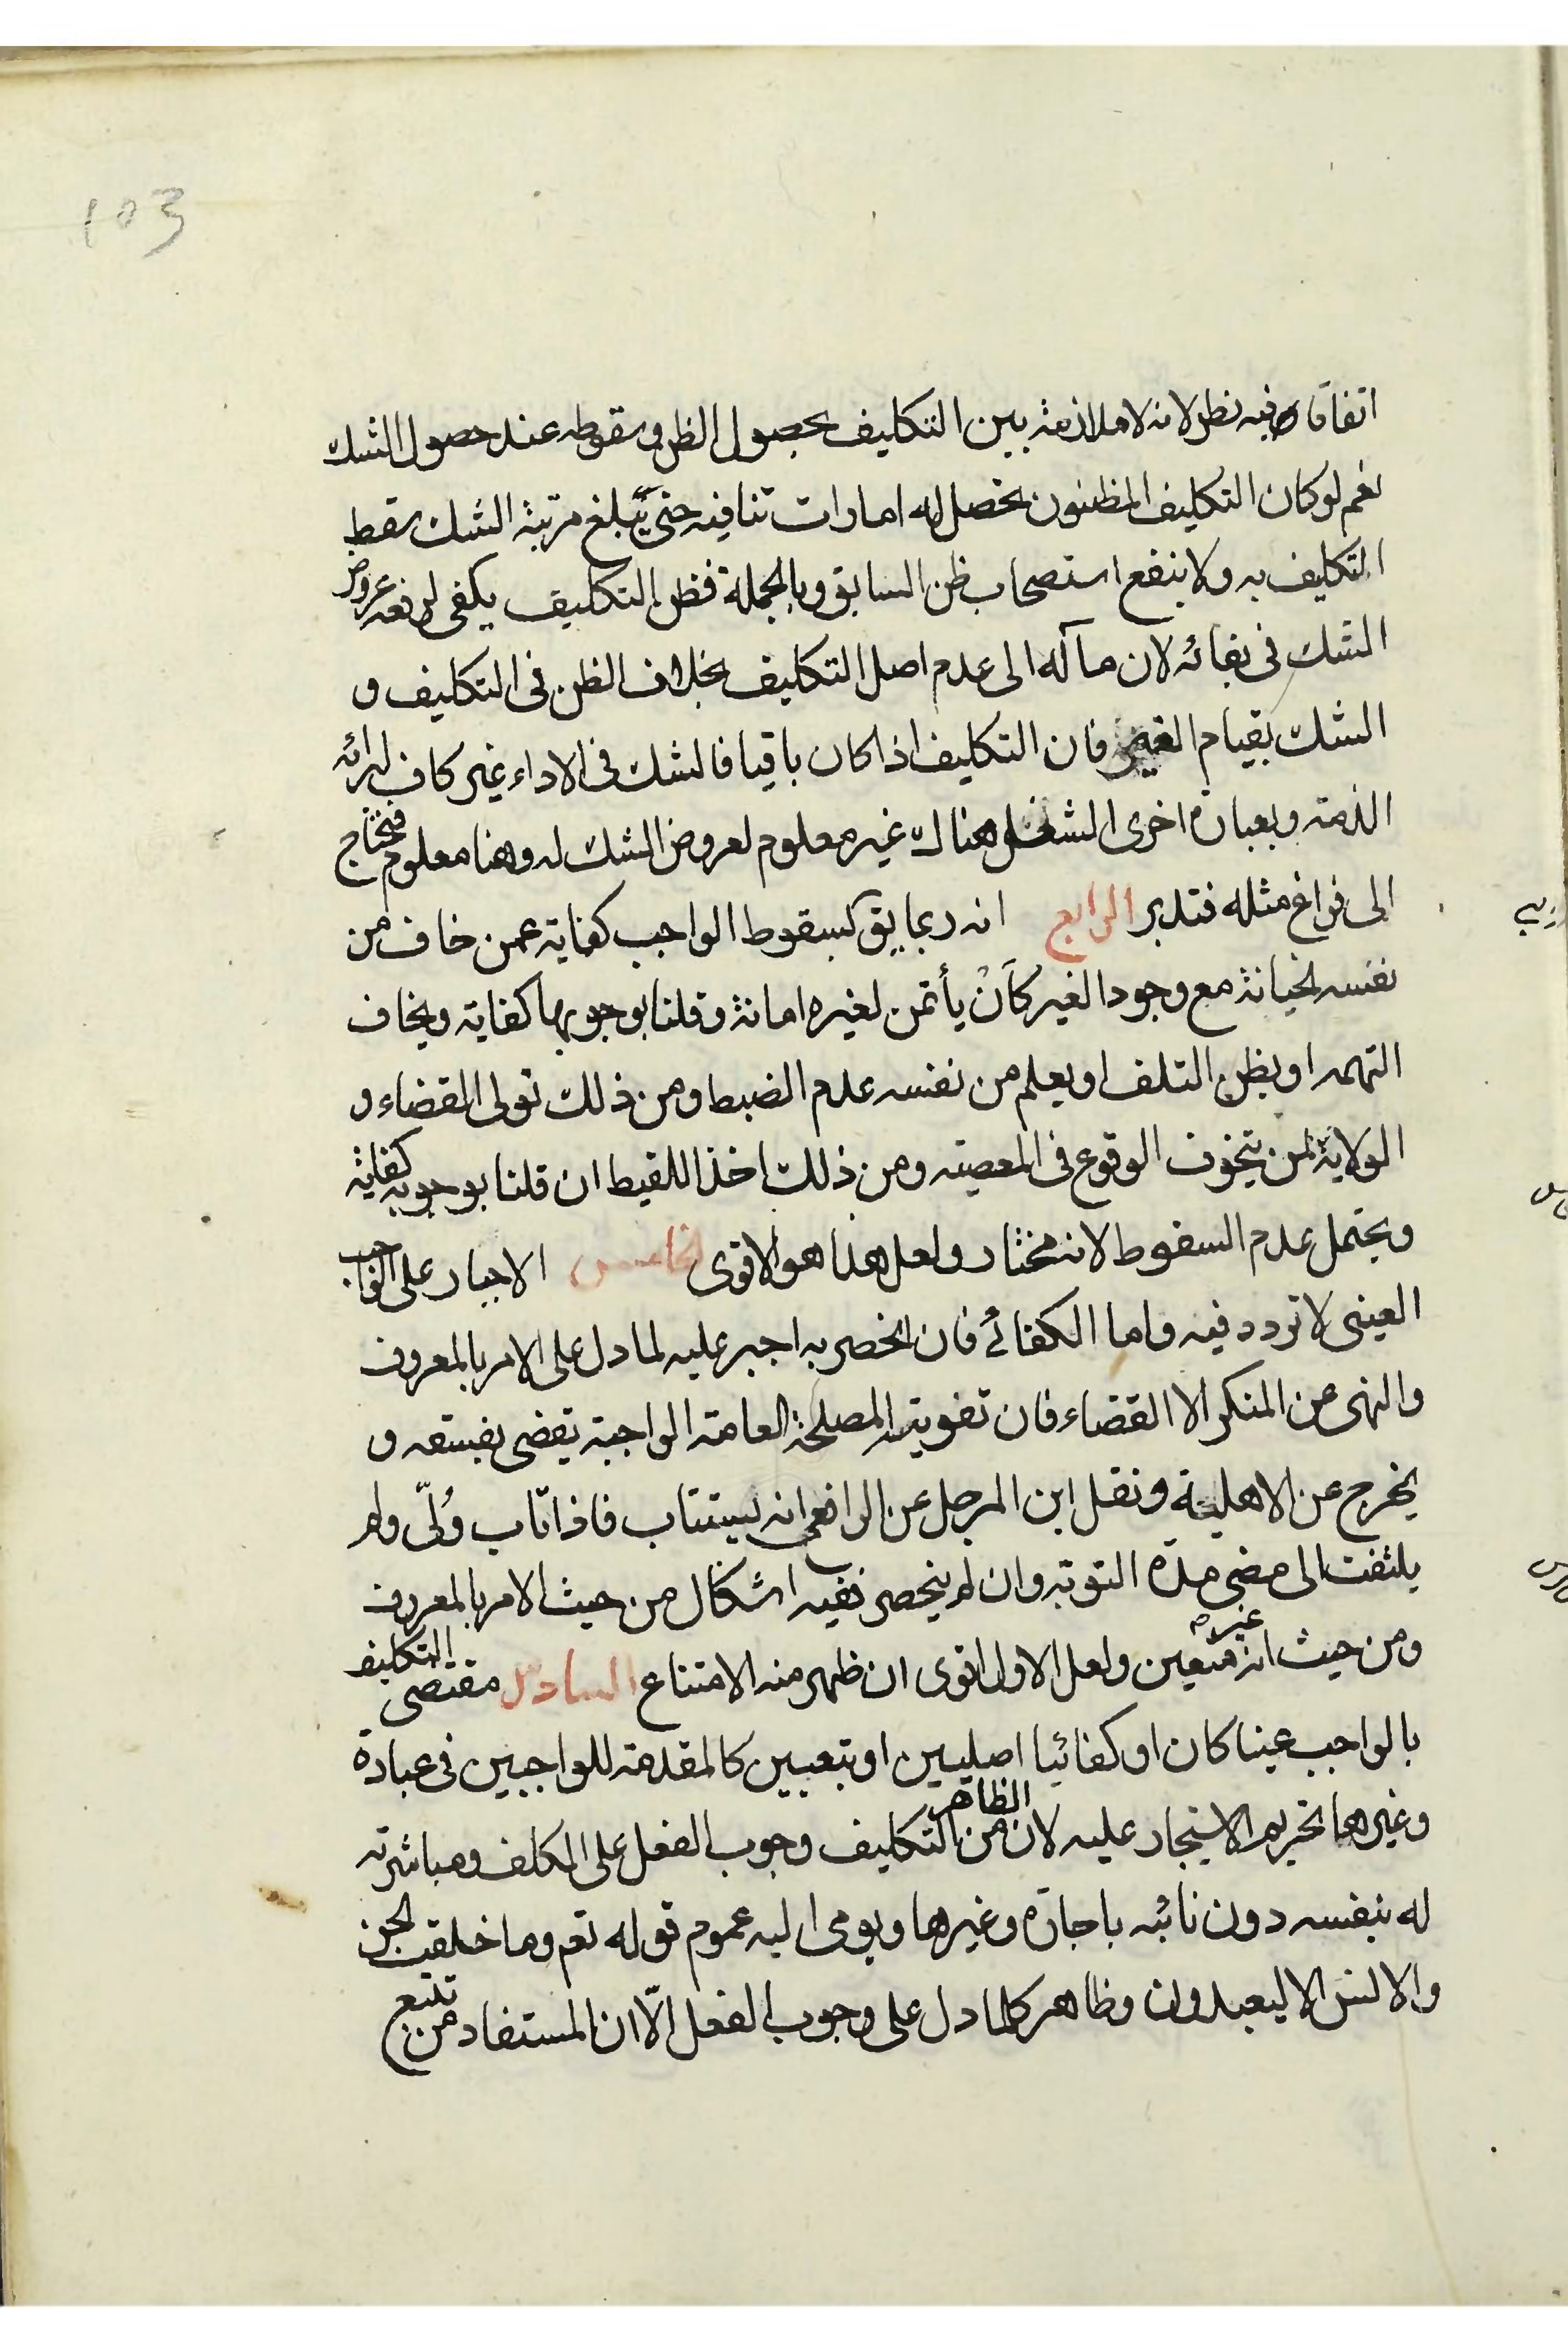 103
اتفاقا وفيه نظر لانه لا ملازمة بين التكليف بحصول الظن وسقوطه عند حصول الشك
نعم لو كان التكليف المظنون تحصل له امارات تنافيه حتى يبلغ مرتبة الشك سقط
التكليف به ولا ينفع استصحاب ظن السابق وبالجملة فظن التكليف يكفى لرفعه عروض
الشك فى بقائه لان مآله الى عدم اصل التكليف بخلاف الظن فى التكليف و
الشك بقيام الغير فان التكليف اذا كان باقيا فالشك فى الاداء غير كاف لبرائه
الذمة وبعبارة اخرى الشغل هناك غير معلوم لعروض الشك له وهنا معلوم فيحتاج
الى فراغ مثله فتدبر الرابع انه ربما يق لسقوط الواجب كفاية عمن خاف من
نفسه الخيانة مع وجود الغير كأن يأتمن لغيره امانة وقلنا بوجوبها كفاية ويخاف
التهمه او يظن التلف او يعلم من نفسه عدم الضبط ومن ذلك تولى القضاء و
الولاية لمن يتخوف الوقوع فى المعصية ومن ذلك اخذ اللقيط ان قلنا بوجوبه كفاية
ويحتمل عدم السقوط لانه مختار ولعل هذا هو الاقوى الخامس الاجبار على الواجب
العينى لا تردد فيه واما الكفائى فان انحصر به اجبر عليه لما دل على الامر بالمعروف
والنهى عن المنكر الا القضاء فان تفويته المصلحة العامة الواجبة تقضى بفسقه و
يخرج عن الاهلية ونقل ابن المرحل عن الرافعى انه يستتاب فاذا تاب وُلّى ولم
يلتفت الى مضى مدة التوبة وان لم ينحصر ففيه اشكال من حيث الامر بالمعروف
ومن حيث انه غير متعين ولعل الاول اقوى ان ظهر منه الامتناع السادس مقتضى التكليف
بالواجب عينا كان او كفائيا اصليين او تبعيين كالمقدمة للواجبين فى عبادة
وغيرها تحريم الاستيجار عليه لان الظاهر من التكليف وجوب الفعل على المكلف ومباشرته
له بنفسه دون نائبه باجارة وغيرها ويومى اليه عموم قوله تعم وما خلقت الجن
والانس الا ليعبدون وظاهر كلما دل على وجوب الفعل الّا ان المستفاد من تتبع